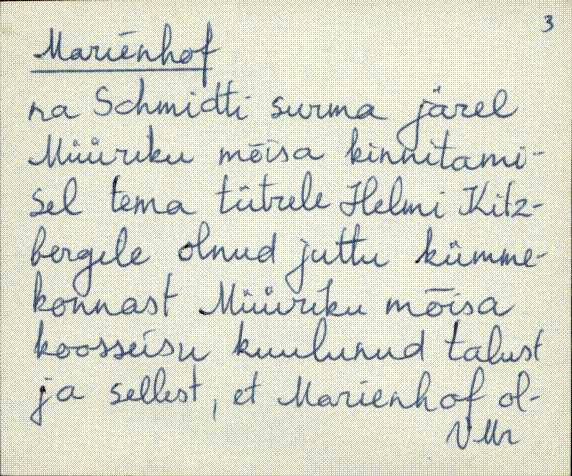 3
Marienhof
na Schmidti surma järel
Müüriku mõisa kinnitami-
sel tema tütrele Helmi Kitz-
bergile olnud juttu kümme-
konnast Müüriku mõisa
koosseisu kuulunud talust
ja sellest, et Marienhof ol-
VMr